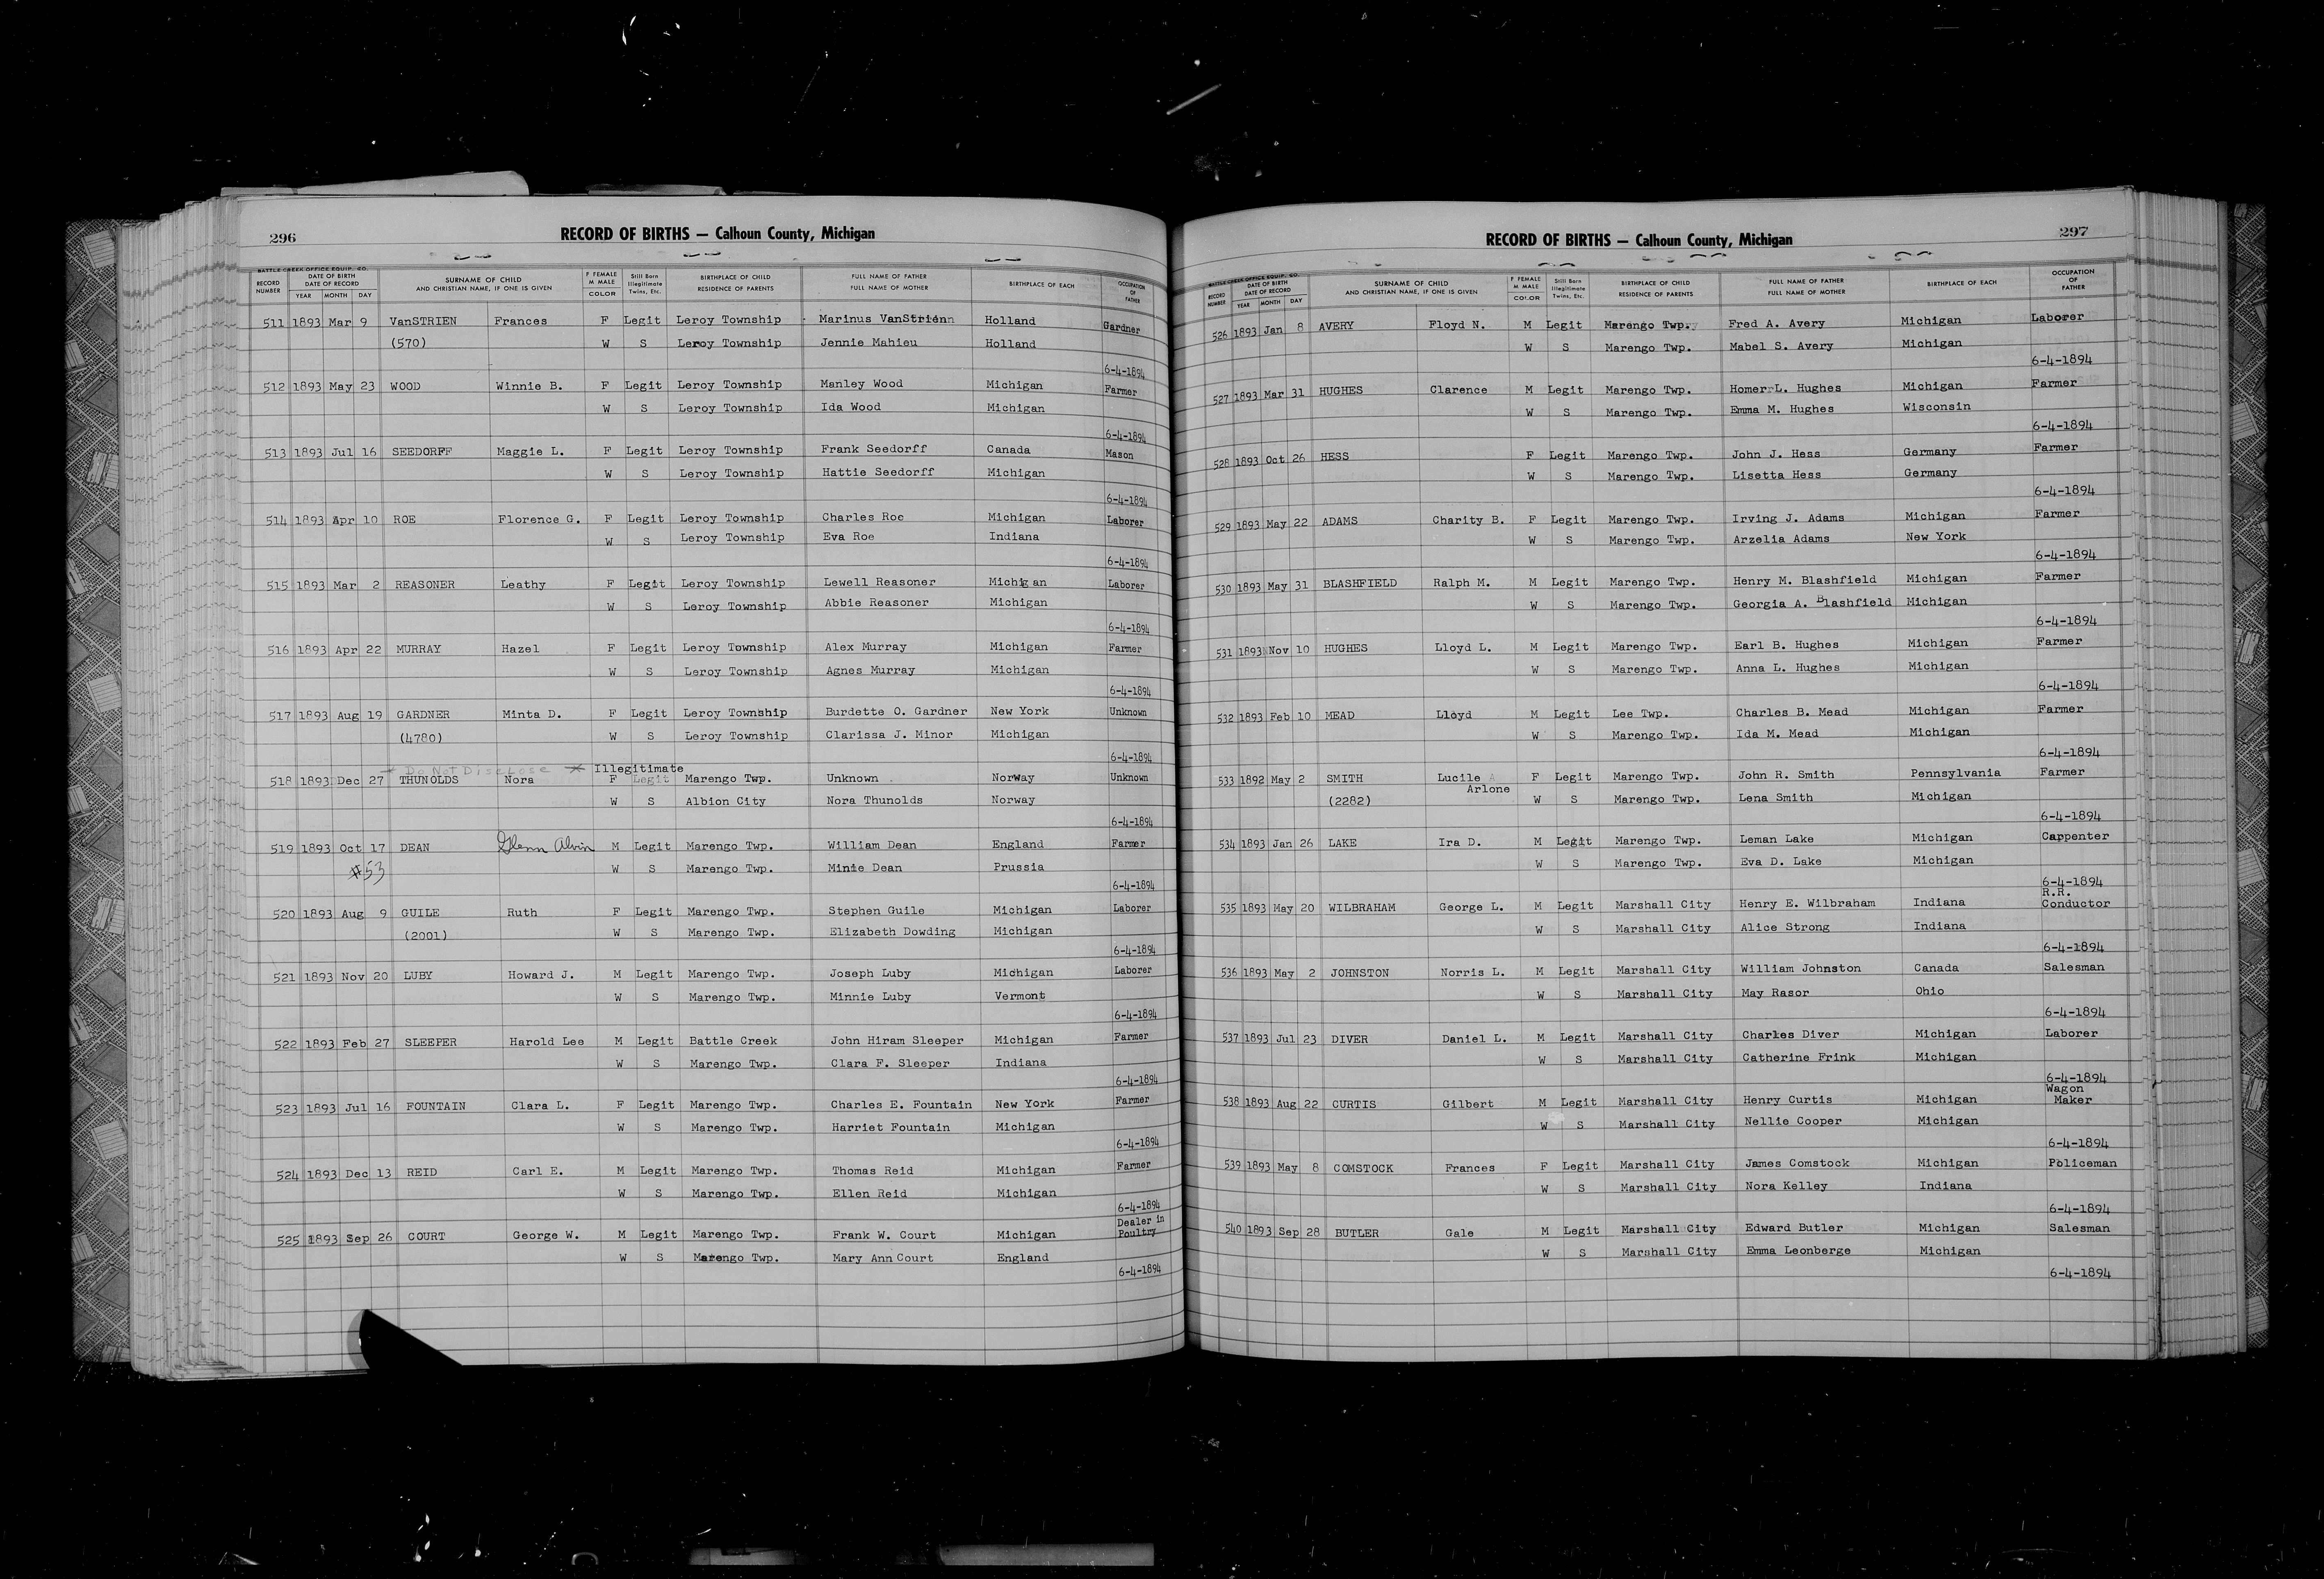 296
RECORD OF BIRTHS — Calhoun County, Michigan
BATTLE CREEK OFFICE EQUIP. CO.
RECORD NUMBER DATE OF BIRTH DATE OF RECORD YEAR MONTH DAY SURNAME OF CHILD AND CHRISTIAN NAME, IF ONE IS GIVEN F FEMALE M MALE COLOR Still Born Illegitimate Twins, Etc. BIRTHPLACE OF CHILD RESIDENCE OF PARENTS FULL NAME OF FATHER FULL NAME OF MOTHER BIRTHPLACE OF EACH OCCUPATION OF FATHER
511 1893 Mar 9 VanSTRIEN Frances F Legit Leroy Township Marinus VanStrienn Holland Gardner
(570) W S Leroy Township Jennie Mahieu Holland
6-4-1894
512 1893 May 23 WOOD Winnie B. F Legit Leroy Township Manley Wood Michigan Farmer
W S Leroy Township Ida Wood Michigan
6-4-1894
513 1893 Jul 16 SEEDORFF Maggie L. F Legit Leroy Township Frank Seedorff Canada Mason
W S Leroy Township Hattie Seedorff Michigan
6-4-1894
514 1893 Apr 10 ROE Florence G. F Legit Leroy Township Charles Roe Michigan Laborer
W S Leroy Township Eva Roe Indiana
6-4-1894
515 1893 Mar 2 REASONER Leathy F Legit Leroy Township Lewell Reasoner Michigan Laborer
W S Leroy Township Abbie Reasoner Michigan
6-4-1894
516 1893 Apr 22 MURRAY Hazel F Legit Leroy Township Alex Murray Michigan Farmer
W S Leroy Township Agnes Murray Michigan
6-4-1894
517 1893 Aug 19 GARDNER Minta D. F Legit Leroy Township Burdette O. Gardner New York Unknown
(4780) W S Leroy Township Clarissa J. Minor Michigan
6-4-1894
* Do Not Disclose * Illegitimate
518 1893 Dec 27 THUNOLDS Nora F Legit Marengo Twp. Unknown Norway Unknown
W S Albion City Nora Thunolds Norway
6-4-1894
519 1893 Oct 17 DEAN Glenn Alvin M Legit Marengo Twp. William Dean England Farmer
#53 W S Marengo Twp. Minie Dean Prussia
6-4-1894
520 1893 Aug 9 GUILE Ruth F Legit Marengo Twp. Stephen Guile Michigan Laborer
(2001) W S Marengo Twp. Elizabeth Dowding Michigan
6-4-1894
521 1893 Nov 20 LUBY Howard J. M Legit Marengo Twp. Joseph Luby Michigan Laborer
W S Marengo Twp. Minnie Luby Vermont
6-4-1894
522 1893 Feb 27 SLEEPER Harold Lee M Legit Battle Creek John Hiram Sleeper Michigan Farmer
W S Marengo Twp. Clara F. Sleeper Indiana
6-4-1894
523 1893 Jul 16 FOUNTAIN Clara L. F Legit Marengo Twp. Charles E. Fountain New York Farmer
W S Marengo Twp. Harriet Fountain Michigan
6-4-1894
524 1893 Dec 13 REID Carl E. M Legit Marengo Twp. Thomas Reid Michigan Farmer
W S Marengo Twp. Ellen Reid Michigan
6-4-1894
525 1893 Sep 26 COURT George W. M Legit Marengo Twp. Frank W. Court Michigan Dealer in Poultry
W S Marengo Twp. Mary Ann Court England
6-4-1894
297
RECORD OF BIRTHS — Calhoun County, Michigan
BATTLE CREEK OFFICE EQUIP. CO.
RECORD NUMBER DATE OF BIRTH DATE OF RECORD YEAR MONTH DAY SURNAME OF CHILD AND CHRISTIAN NAME, IF ONE IS GIVEN F FEMALE M MALE COLOR Still Born Illegitimate Twins, Etc. BIRTHPLACE OF CHILD RESIDENCE OF PARENTS FULL NAME OF FATHER FULL NAME OF MOTHER BIRTHPLACE OF EACH OCCUPATION OF FATHER
526 1893 Jan 8 AVERY Floyd N. M Legit Marengo Twp. Fred A. Avery Michigan Laborer
W S Marengo Twp. Mabel S. Avery Michigan
6-4-1894
527 1893 Mar 31 HUGHES Clarence M Legit Marengo Twp. Homer L. Hughes Michigan Farmer
W S Marengo Twp. Emma M. Hughes Wisconsin
6-4-1894
528 1893 Oct 26 HESS F Legit Marengo Twp. John J. Hess Germany Farmer
W S Marengo Twp. Lisetta Hess Germany
6-4-1894
529 1893 May 22 ADAMS Charity B. F Legit Marengo Twp. Irving J. Adams Michigan Farmer
W S Marengo Twp. Arzelia Adams New York
6-4-1894
530 1893 May 31 BLASHFIELD Ralph M. M Legit Marengo Twp. Henry M. Blashfield Michigan Farmer
W S Marengo Twp. Georgia A. Blashfield Michigan
6-4-1894
531 1893 Nov 10 HUGHES Lloyd L. M Legit Marengo Twp. Earl B. Hughes Michigan Farmer
W S Marengo Twp. Anna L. Hughes Michigan
6-4-1894
532 1893 Feb 10 MEAD Lloyd M Legit Lee Twp. Charles B. Mead Michigan Farmer
W S Marengo Twp. Ida M. Mead Michigan
6-4-1894
533 1892 May 2 SMITH Lucile A F Legit Marengo Twp. John R. Smith Pennsylvania Farmer
(2282) Arlone W S Marengo Twp. Lena Smith Michigan
6-4-1894
534 1893 Jan 26 LAKE Ira D. M Legit Marengo Twp. Leman Lake Michigan Carpenter
W S Marengo Twp. Eva D. Lake Michigan
6-4-1894
535 1893 May 20 WILBRAHAM George L. M Legit Marshall City Henry E. Wilbraham Indiana R.R. Conductor
W S Marshall City Alice Strong Indiana
6-4-1894
536 1893 May 2 JOHNSTON Norris L. M Legit Marshall City William Johnston Canada Salesman
W S Marshall City May Rasor Ohio
6-4-1894
537 1893 Jul 23 DIVER Daniel L. M Legit Marshall City Charles Diver Michigan Laborer
W S Marshall City Catherine Frink Michigan
6-4-1894
538 1893 Aug 22 CURTIS Gilbert M Legit Marshall City Henry Curtis Michigan Wagon Maker
W S Marshall City Nellie Cooper Michigan
6-4-1894
539 1893 May 8 COMSTOCK Frances F Legit Marshall City James Comstock Michigan Policeman
W S Marshall City Nora Kelley Indiana
6-4-1894
540 1893 Sep 28 BUTLER Gale M Legit Marshall City Edward Butler Michigan Salesman
W S Marshall City Emma Leonberge Michigan
6-4-1894